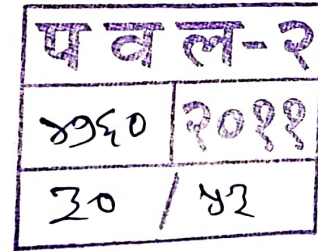 प व ल-२
४७६० २०११
३० / ५२